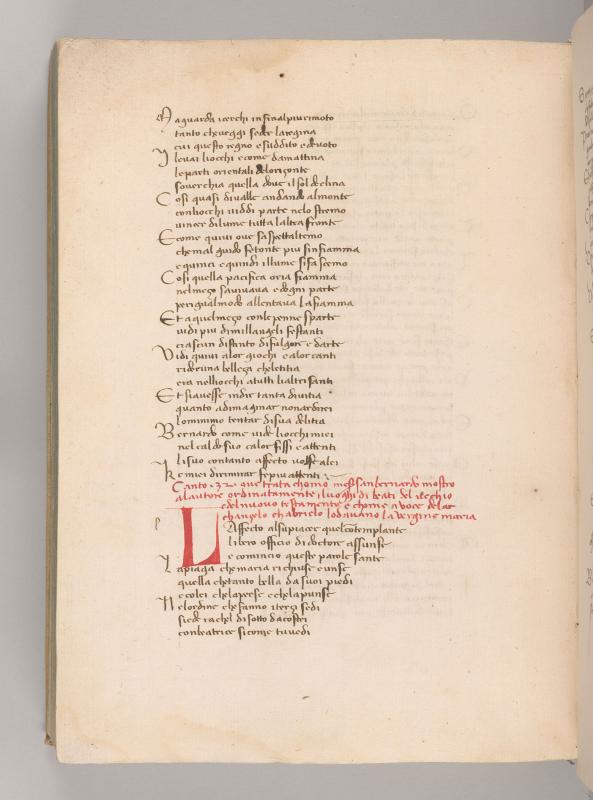 Ma guarda icerchi infinalpiurimoto
tanto cheveggi seder laregina
cui questo regno e suddito e devoto
I levai liocchi e come da mattina
le parti orientali deloriçonte
soverchia quella dove il sol declina
Cosi quasi di valle andando almonte
conliocchi viddi parte nelo stremo
vincer dilume tutta laltra fronte
E come quivi ove saspettaltemo
che mal guido fetonte piu sinfiamma
e quinci e quindi illume sifa scemo
Cosi quella pacifica oria fiamma
nelmeço savivava e dogni parte
perigualmodo allentava lafiamma
Et a quelmeço conlepenne sparte
vidi piu dimillangeli festanti
ciascun distinto difulgore e darte
Vidi quivi alor giochi e alor canti
rider una belleça cheletitia
era nelliocchi atutti lialtri santi
Et siavesse indir tanta divitia
quanto adimaginar nonardirei
lominimo tentar disua delitia
Bernardo come vide liocchi miei
nel caldo suo calor fissi e attenti
li suoi contanto affecto volse alei
Che miei dirimirar fe piu attenti
Canto .32. que trata chomo mess sanbernardo mostro
al autore ordinatamente i luoghi di beati del vechio
e del nuovo testamento e chome a voce delar
changelo ghabrielo lodavano la vergine maria
LAffecto alsupiacer quelcontemplante
libero officio di doctore assunse
e comincio queste parole sante
Lapiaga che maria richiuse e unse
quella chetanto bella da suoi piedi
e colei chelaperse e chelapunse
Nelordine chefanno iterçi sedi
siede rachel disotto dacostei
conbeatrice sicome tuvedi